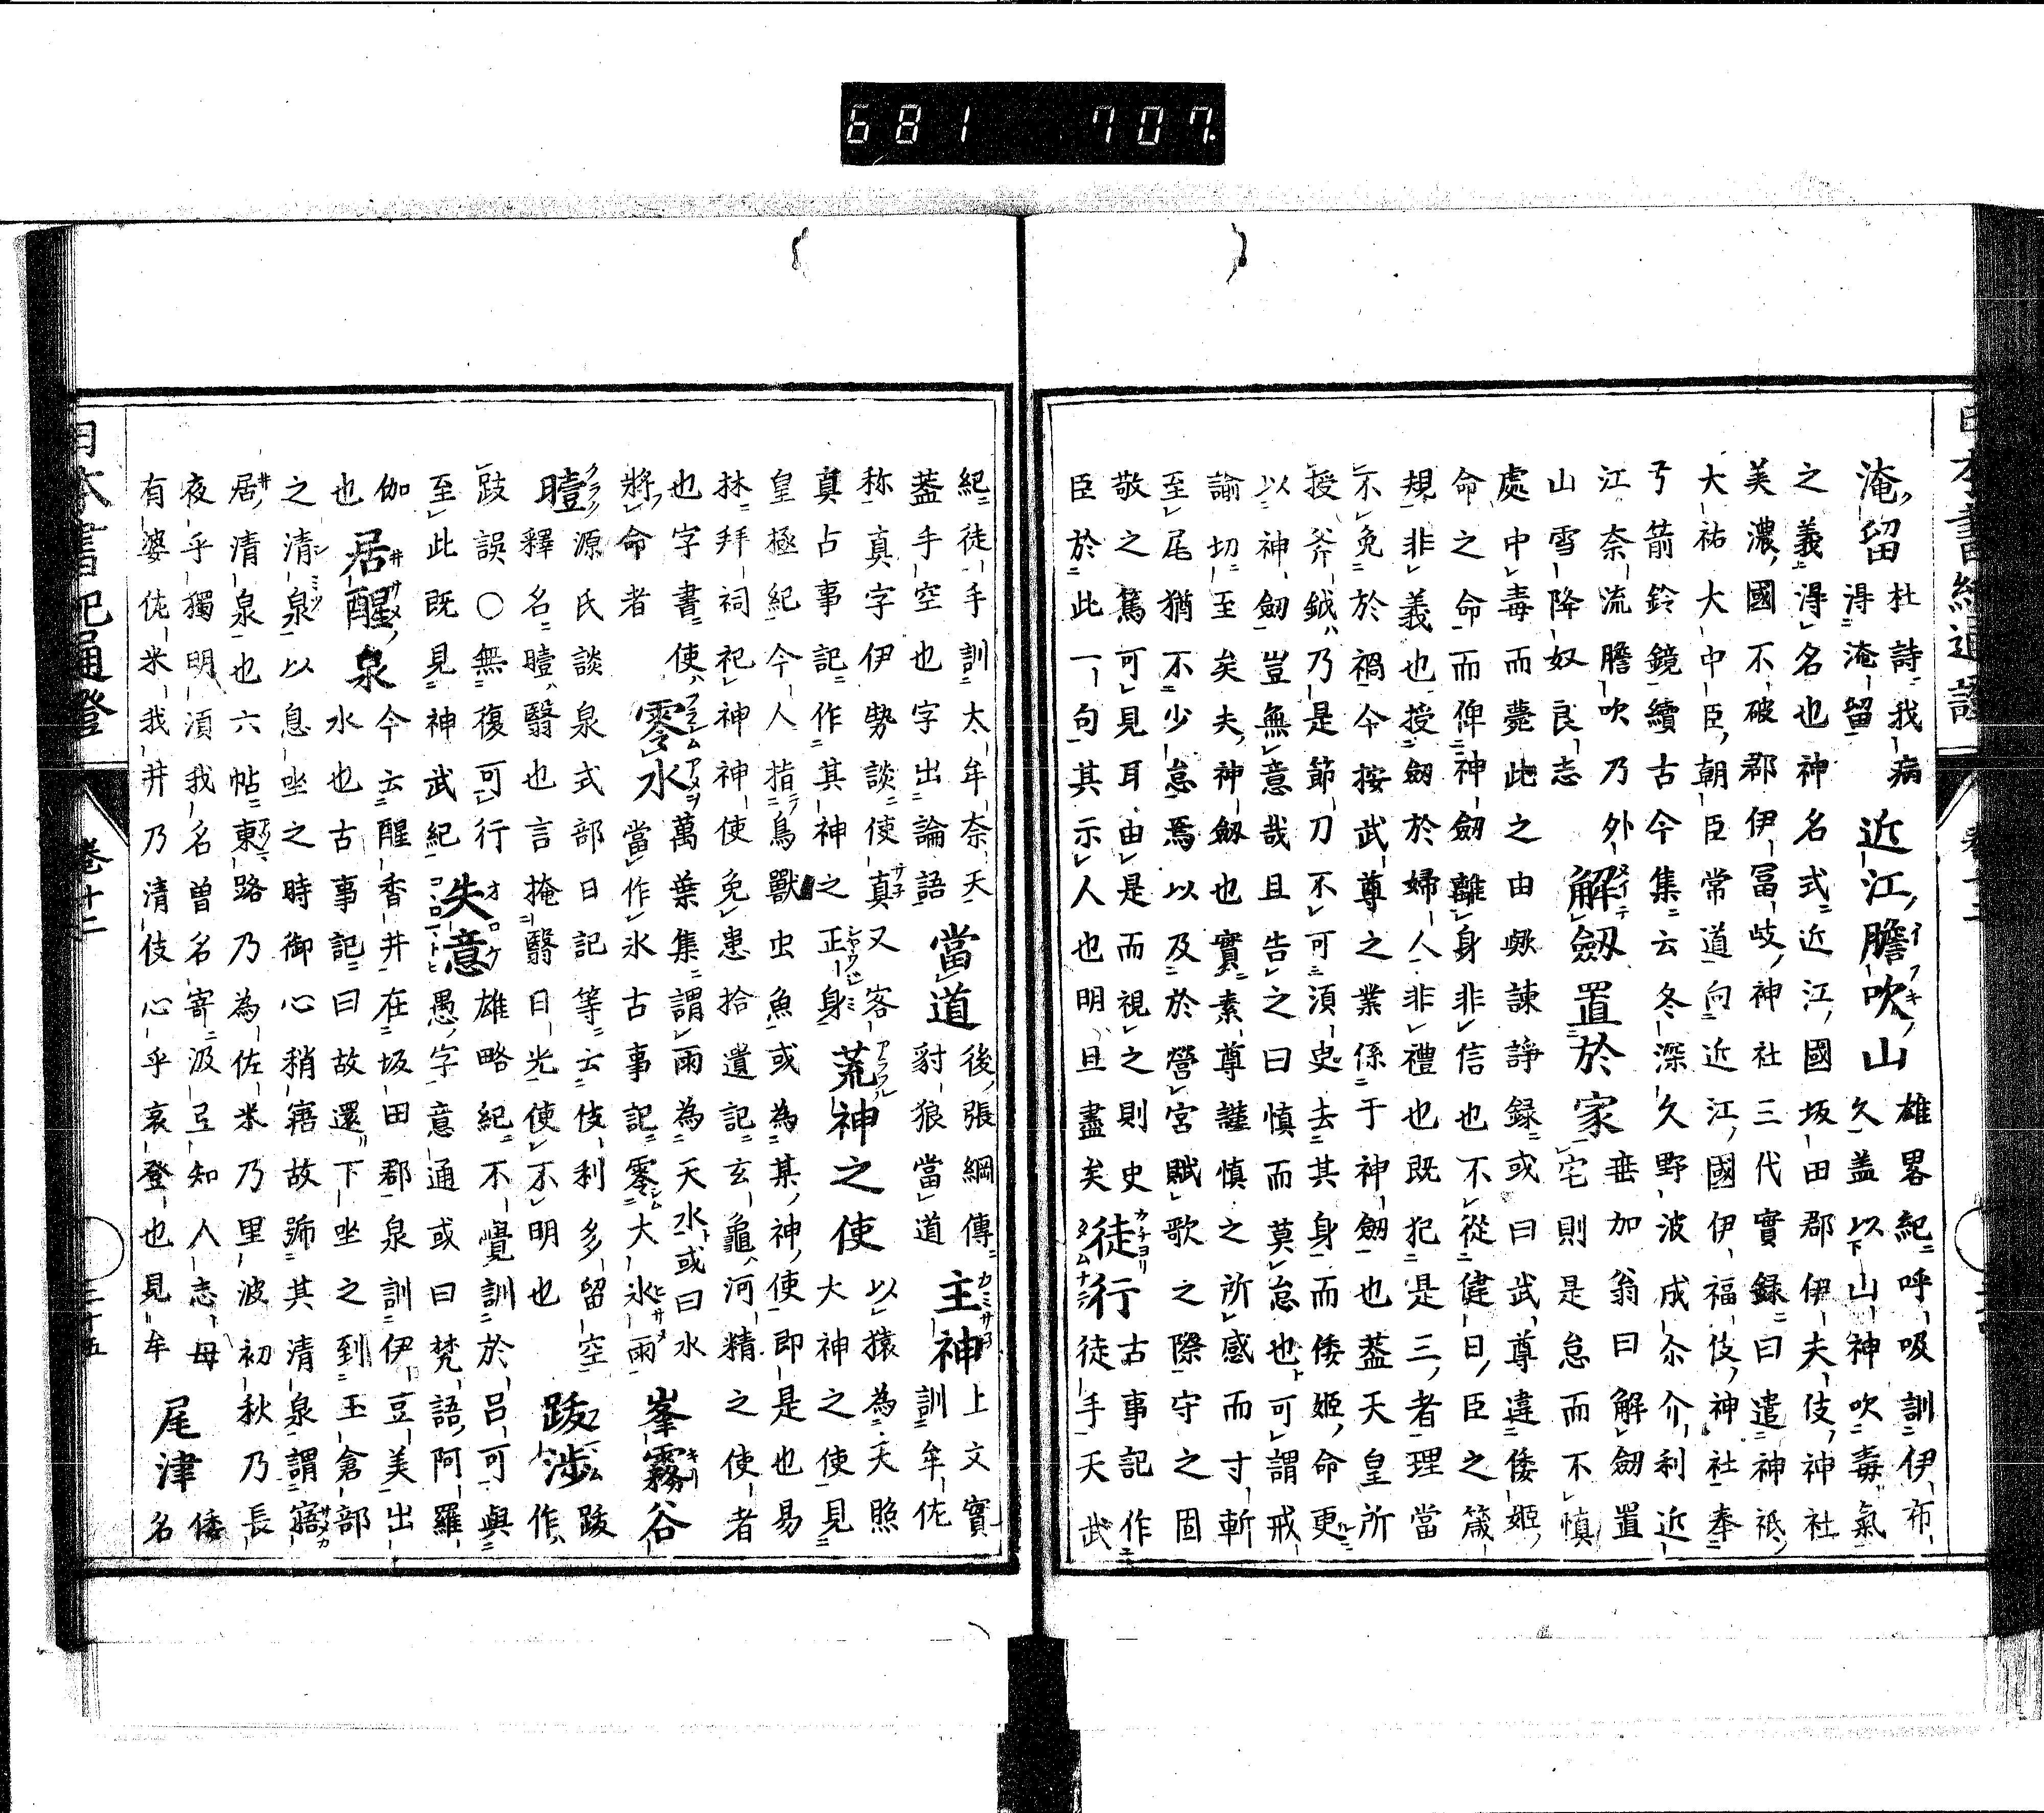 681 707.
淹留 杜詩我病
得淹留 近江膽吹山 雄畧紀呼吸訓伊布
久盖以山神吹毒氣
之義得名也神名式近江國坂田郡伊夫伎神社
美濃國不破郡伊冨岐神社三代實録曰遣神祇
大祐大中臣朝臣常道向近江國伊福伎神社奉
弓箭鈴鏡續古今集云冬深久野波成尒介利近
江奈流膽吹乃外 解劔置於家 垂加翁曰解劔置
山雪降奴良志 宅則是怠而不慎
處中毒而薨此之由歟諫諍録或曰武尊違倭姫
命之命而俾神劔離身非信也不從健日臣之箴
規非義也授劔於婦人非禮也既犯是三者理當
不免於禍今按武尊之業係于神劔也葢天皇所
授斧鉞乃是節刀不可須臾去其身而倭姫命更
以神劔豈無意哉且告之曰慎而莫怠也可謂戒
諭切至矣夫神劔也實素尊謹慎之所感而寸斬
至尾猶不少怠焉以及於營宮賦歌之際守之固
敬之篤可見耳由是而視之則史 徒行 古事記作
臣於此一句其示人也明且盡矣 徒手天武
紀徒手訓太牟奈天 當道 後張綱傳 主神 上文實
葢手空也字出論語 豺狼當道 訓牟佐
称真字伊勢談使真又客 荒神之使 以猿為天照
真占事記作其神之正身 大神之使見
皇極紀今人指鳥獸虫魚或為某神使即是也易
林拜祠祀神神使免患拾遺記玄龜河精之使者
也字書使 零水 萬葉集謂雨為天水或曰水 峯霧谷
將命者 當作氷古事記零大氷雨
曀 源氏談泉式部日記等云伎利多留空 跋涉 跋
釋名曀翳也言掩翳日光使不明也 作
跂誤○無復可行 失意 雄略紀不覺訓於呂可與
至此既見神武紀 愚字意通或曰梵語阿羅
伽 居醒泉 今云醒香井在坂田郡泉訓伊豆美出
也 水也古事記曰故還下坐之到玉倉部
之清泉以息坐之時御心稍寤故號其清泉謂寤
居清泉也六帖東路乃為佐米乃里波初秋乃長
夜乎獨明須我名曽名寄汲弖知人志母 尾津 倭
有婆佐米我井乃清伎心乎哀登也見牟 名
日本書紀通證 卷十二 三十五